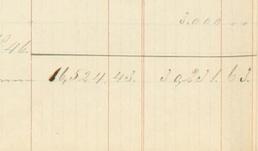 3.000 --
46.
16,524.43. 30,231.63.